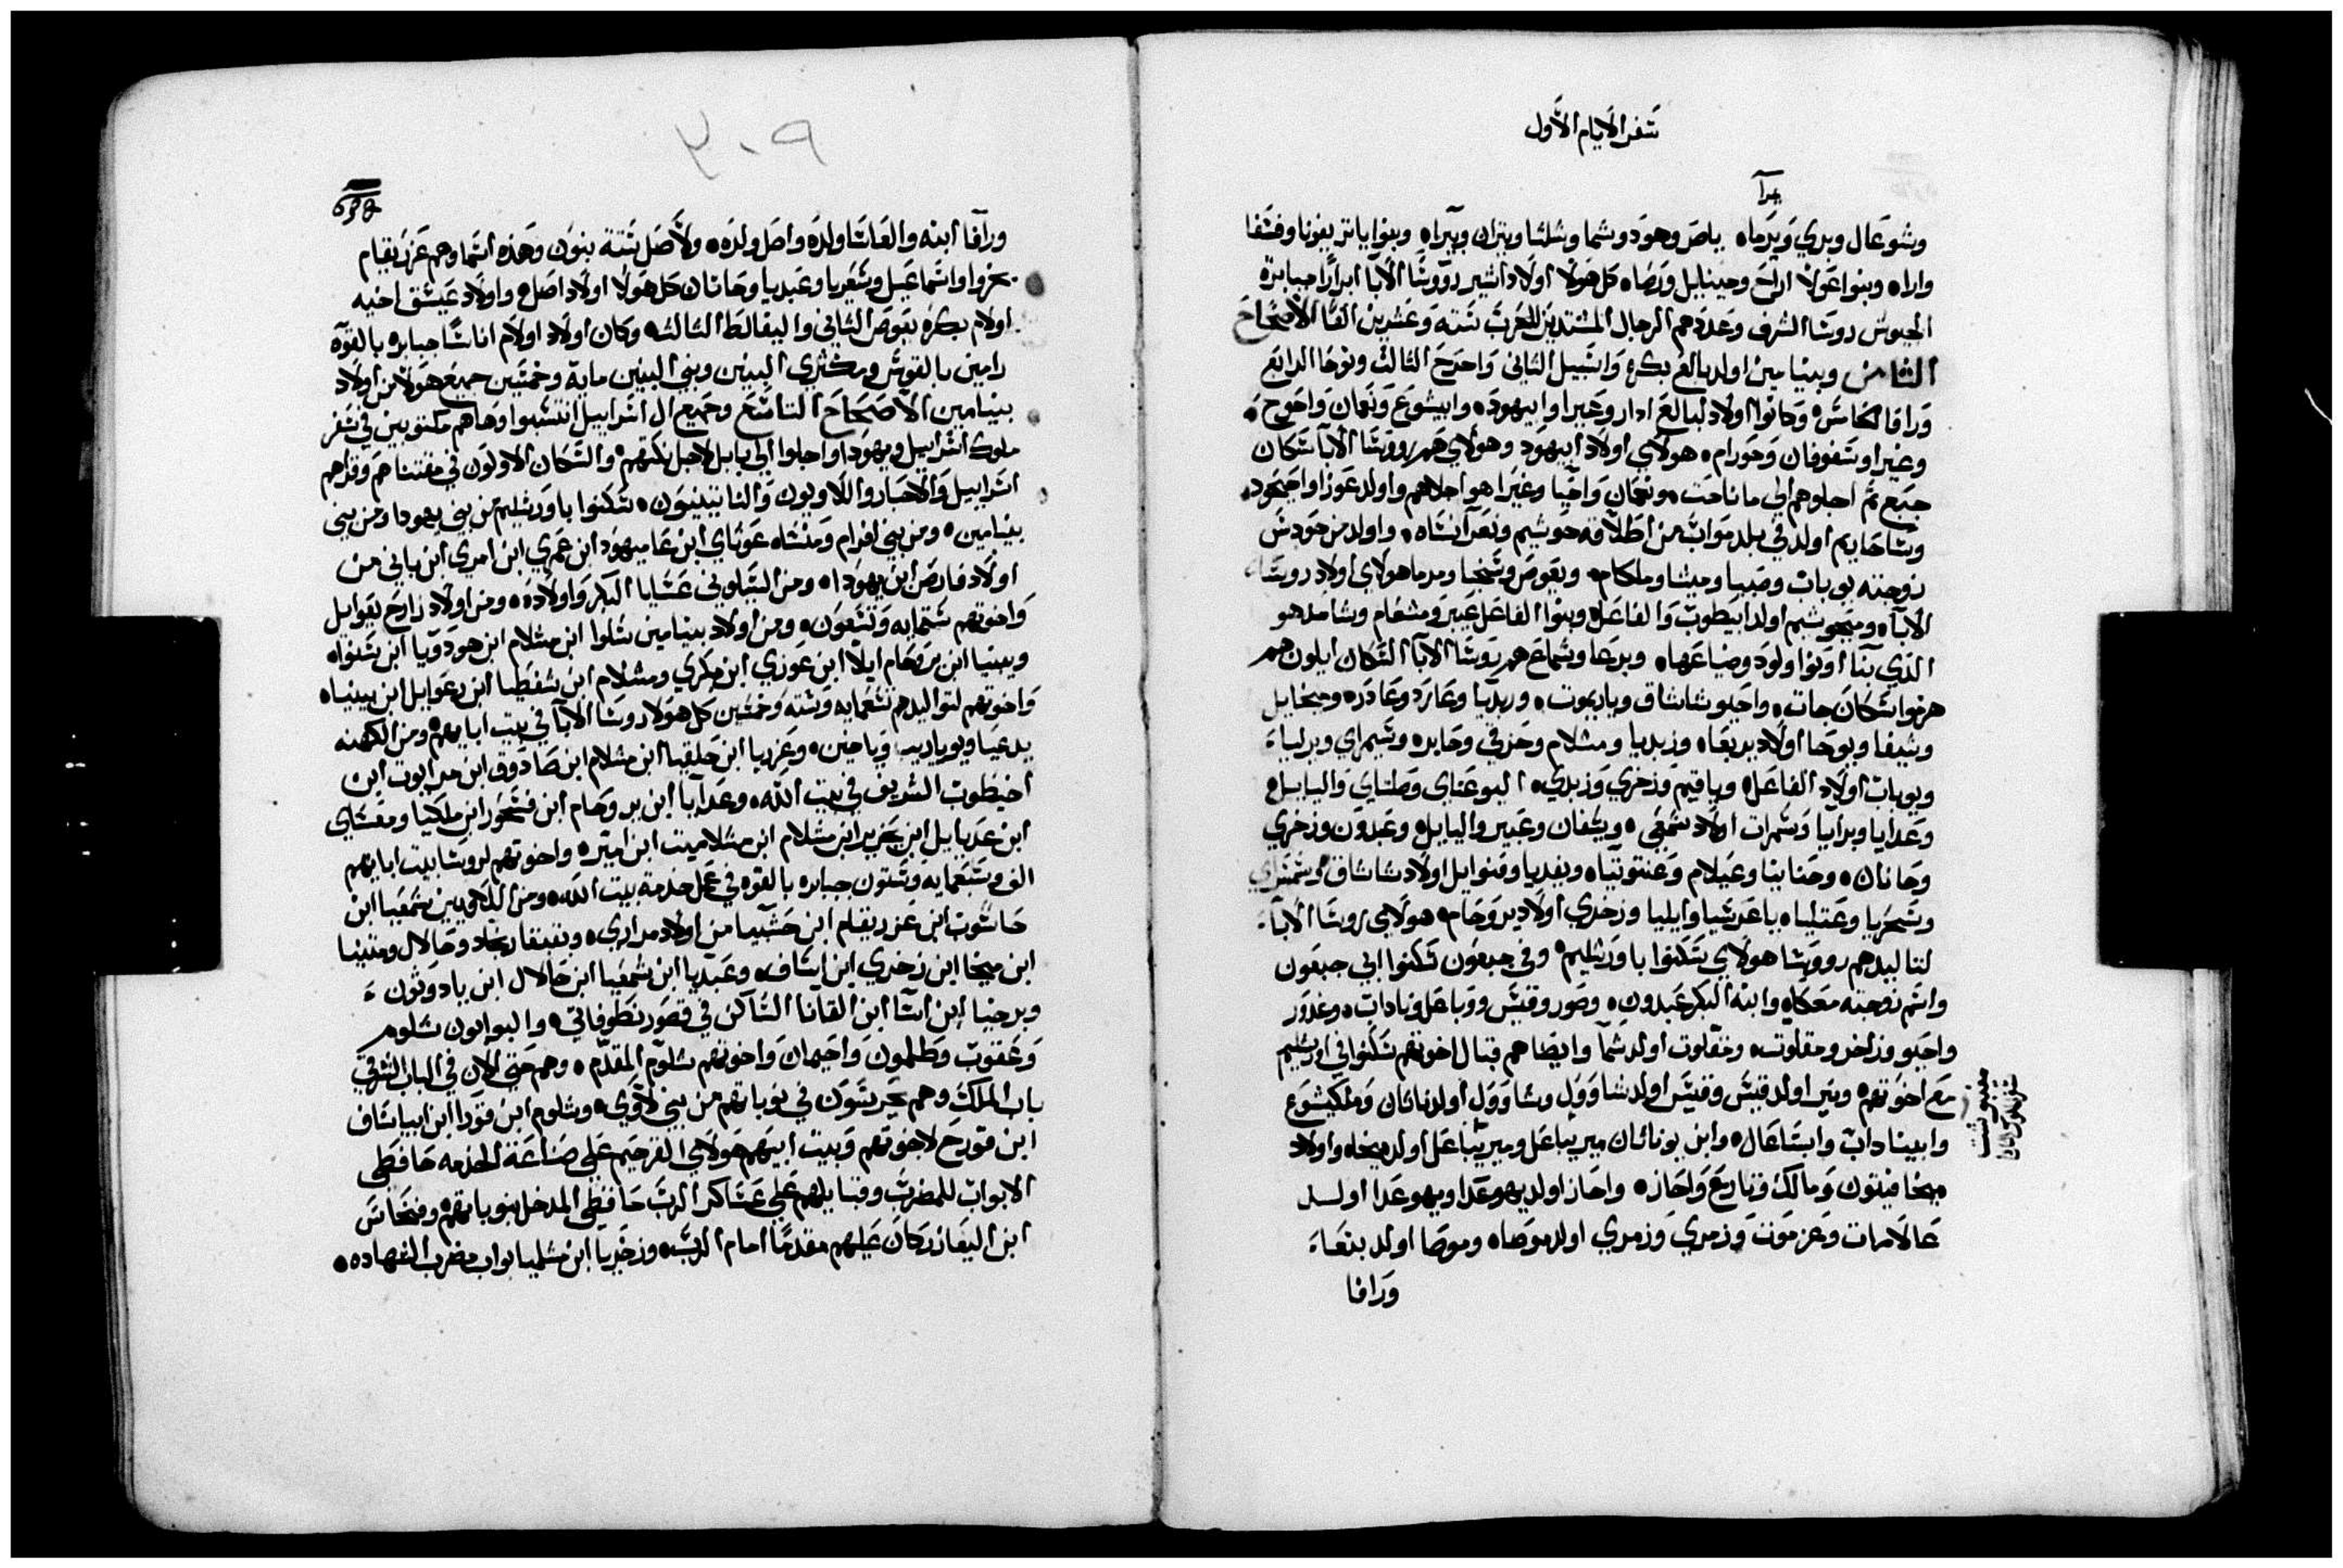 سفر الايام الاول
يدآ
وشوعال وبري ويرماه باصر وهود وشما وشلشا ويتران وبيراه وبنوا ياتر يفونا وفسفا
واراه وبنوا عولا اراخ وحينايل ورصاه كل هولا اولاد اشير رووسا الابا ابرارا جبابرة
الجيوش روسا الشرف وعددهم الرجال المستعدين للحرب ستة وعشرين الفا الاصحاح
الثامن وبنيامين اولد بالع بكره واشبيل الثاني واحرح الثالث ونوحا الرابع
ورافا الخامس وكانوا اولاد لبالع ادار وجيرا وابيهود وابيشوع ونعمان واحوح
وغيرا وسفوفان وحورام هولاي اولاد ابيهود وهولاي هم رووسا الابا سكان
جبع ثم اجلوهم الي ماناحت ونعمان واحيا وغيرا هو اجلاهم واولد عوزا واحيحود
وشاحاريم اولد في بلد مواب من اطلاقه حوشيم وبعرا نساه واولد من حودش
زوجته يوباب وصبيا وميشا وملكام ويعوص وشخيا ومرما هولاي اولاد روسا
الابا ومحوشيم اولد ابيطوب والفاعل وبنوا الفاعل عيبر ومشعام وشامد هو
الذي بنا اونوا ولود وضياعها وبرعا وشماع هم روسا الابا السكان ايلون هم
هزموا سكان جات واحيو شاشاق وياريموت وزبديا وعارد وعادر وميخايل
ويشفا ويوحا اولاد بريعاه وزبديا ومشلام وحزقي وحابر ويشمراي ويزلياء
ويوباب اولاد الفاعل وياقيم وزخري وزبدي اليوعناي وصلتاي والياييل
وعدايا وبرايا وشمرات اولاد شمعي ويشفان وعيبر واليايل وعبدون وزخري
وحانان وحنانيا وعيلام وعنتوتياه ويفديا وفنوايل اولاد شاشاق وشمشراي
وشحريا وعتلياه ياعرشيا وايليا وزخري اولاد يروحام هولاي روسا الاباء
لتاليدهم رووسا هولاي سكنوا باورشليم وفي جبعون سكنوا ابي جبعون
واسم زوجته معكاه وابنه البكر عبدون وصور وقيس وباعل وناداب وغدور
واحيو وزاخر ومقلوت ومقلوت اولد شما وايضا هم قبال اخوتهم سكنوا في اورشليم
مع اخوتهم ونير اولد قيس وقيس اولد شاوول وشاوول اولد ناثان وملكيشوع
وابيناداب وابشاعال وابن يوناثان ميريباعل وميريباعل اولد ميخا واولاد
ميخا فيتون ومالك وتاريع واحاز واحاز اولد يهوعدا ويهوعدا اولد
عالامات وعزموت وزمري وزمري اولد موصاه وموصا اولد بنعاء
ورافا
٣٠٩
ورافا ابنه والعاسا ولده واصل ولده ولاصل ستة بنون وهذه اسماوهم عزريقام
بخروا واسماعيل وشعريا وعبديا وحانان كل هولا اولاد اصل واولاد عيشق اخيه
اولام بكره يعوص الثاني واليفالط الثالث وكان اولاد اولام اناسا جبابره بالقوة
رامين بالقوس ومكثري البنين وبني البنين ماية وخمسين جميع هولا من اولاد
بنيامين الاصحاح التاسع وجميع ال اسراييل انتسبوا وها هم مكتوبين في سفر
ملوك اسراييل ويهودا واجلوا الي بابل لاجل نكثهم والسكان الاولون في مقتناهم وقراهم
اسراييل والاحبار واللاويون والناثينيون سكنوا باورشليم من بني يهودا ومن بني
بنيامين ومن بني افرام ومنشاه عوثاي ابن عاميهود ابن عمري ابن امري ابن باني من
اولاد فارص ابن يهودا ومن الشيلوني عسايا البكر واولاده ومن اولاد زارح يعوايل
واخوتهم ستمايه وتسعون ومن اولاد بنيامين سلوا ابن مشلام ابن هودويا ابن سنواه
ويبنيا ابن يرحام ايلا ابن عوزي ابن مكري ومشلام ابن شفطيا ابن رعوايل ابن يبنياه
واخوتهم لتواليدهم تسعمايه وستة وخمسين كل هولا روسا الابا في بيت ابايهم ومن الكهنه
يدعيا ويوياريب وياخين وعزريا ابن حلقيا ابن مشلام ابن صادوق ابن مرايوت ابن
اخيطوب الشريف في بيت الله وعدايا ابن يروحام ابن فسحور ابن ملكيا ومعساي
ابن عديايل ابن يحزيرا ابن مشلام ابن مشلاميت ابن امير واخوتهم لروسا بيت ابايهم
الف وسبعمايه وستون جبابره بالقوه في عمل خدمة بيت الله ومن اللاويين شمعيا ابن
حاشوب ابن عزريقام ابن حشبيا من اولاد مراري وبقبقار نجار وحالال ومتنيا
ابن ميخا ابن زخري ابن اساف وعبديا ابن شمعيا ابن حالال ابن يادوثون
وبرخيا ابن اسا ابن القانا الساكن في قصور نطوفاتي والبوابون شلوم
وعقوب وطلمون واحيمان واخوتهم شلوم المقدم وهم حتي الان في الباب الشرقي
باب الملك وهم يحرسون في نوباتهم من بني لاوي وشلوم ابن قورا ابن ابياساف
ابن قورح لاخوتهم وبيت ابيهم هولاي القرحيم علي صناعة الخدمه حافظي
الابواب للمضرب وقبايلهم علي عساكر الرب حافظي المدخل بنوباتهم وفنحاس
ابن اليعازر كان عليهم مقدما امام الرب وزخريا ابن مشلميا بواب مضرب الشهاده